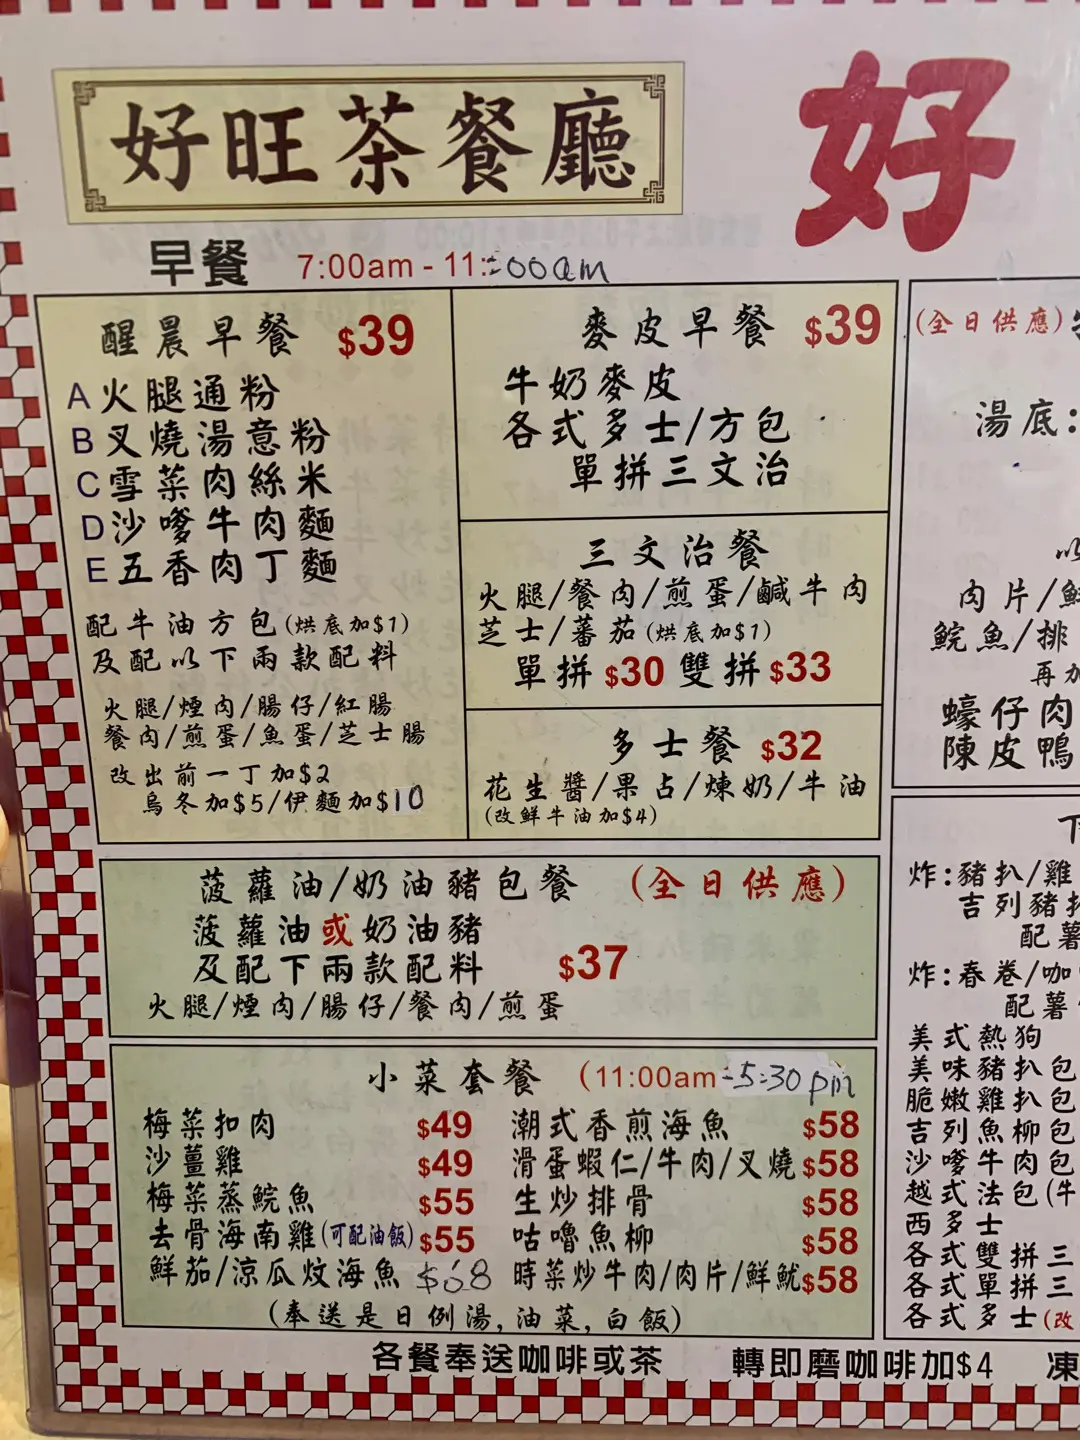 好旺茶餐廳
好
早餐 7:00am - 11:00am
醒晨早餐 $39
A火腿通粉
B叉燒湯意粉
C雪菜肉絲米
D沙嗲牛肉麵
E五香肉丁麵
配牛油方包(烘底加$1)
及配以下兩款配料
火腿/煙肉/腸仔/紅腸
餐肉/煎蛋/魚蛋/芝士腸
改出前一丁加$2
烏冬加$5/伊麵加$10
麥皮早餐 $39
牛奶麥皮
各式多士/方包
單拼三文治
三文治餐
火腿/餐肉/煎蛋/鹹牛肉
芝士/蕃茄(烘底加$1)
單拼 $30 雙拼 $33
多士餐 $32
花生醬/果占/煉奶/牛油
(改鮮牛油加$4)
菠蘿油/奶油豬包餐 (全日供應)
菠蘿油或奶油豬
及配下兩款配料 $37
火腿/煙肉/腸仔/餐肉/煎蛋
小菜套餐 (11:00am-5:30pm
梅菜扣肉 $49 潮式香煎海魚 $58
沙薑雞 $49 滑蛋蝦仁/牛肉/叉燒 $58
梅菜蒸鯇魚 $55 生炒排骨 $58
去骨海南雞(可配油飯) $55 咕嚕魚柳 $58
鮮茄/涼瓜炆海魚 $68 時菜炒牛肉/肉片/鮮魷 $58
(奉送是日例湯,油菜,白飯)
(全日供應)
湯底:
以
肉片/鮮
鯇魚/排
再加
蠔仔肉
陳皮鴨
下
炸:豬扒/雞
吉列豬扒
配薯
炸:春卷/咖
配薯
美式熱狗
美味豬扒包
脆嫩雞扒包
吉列魚柳包
沙嗲牛肉包
越式法包(牛
西多士
各式雙拼三
各式單拼三
各式多士(改
各餐奉送咖啡或茶 轉即磨咖啡加$4 凍